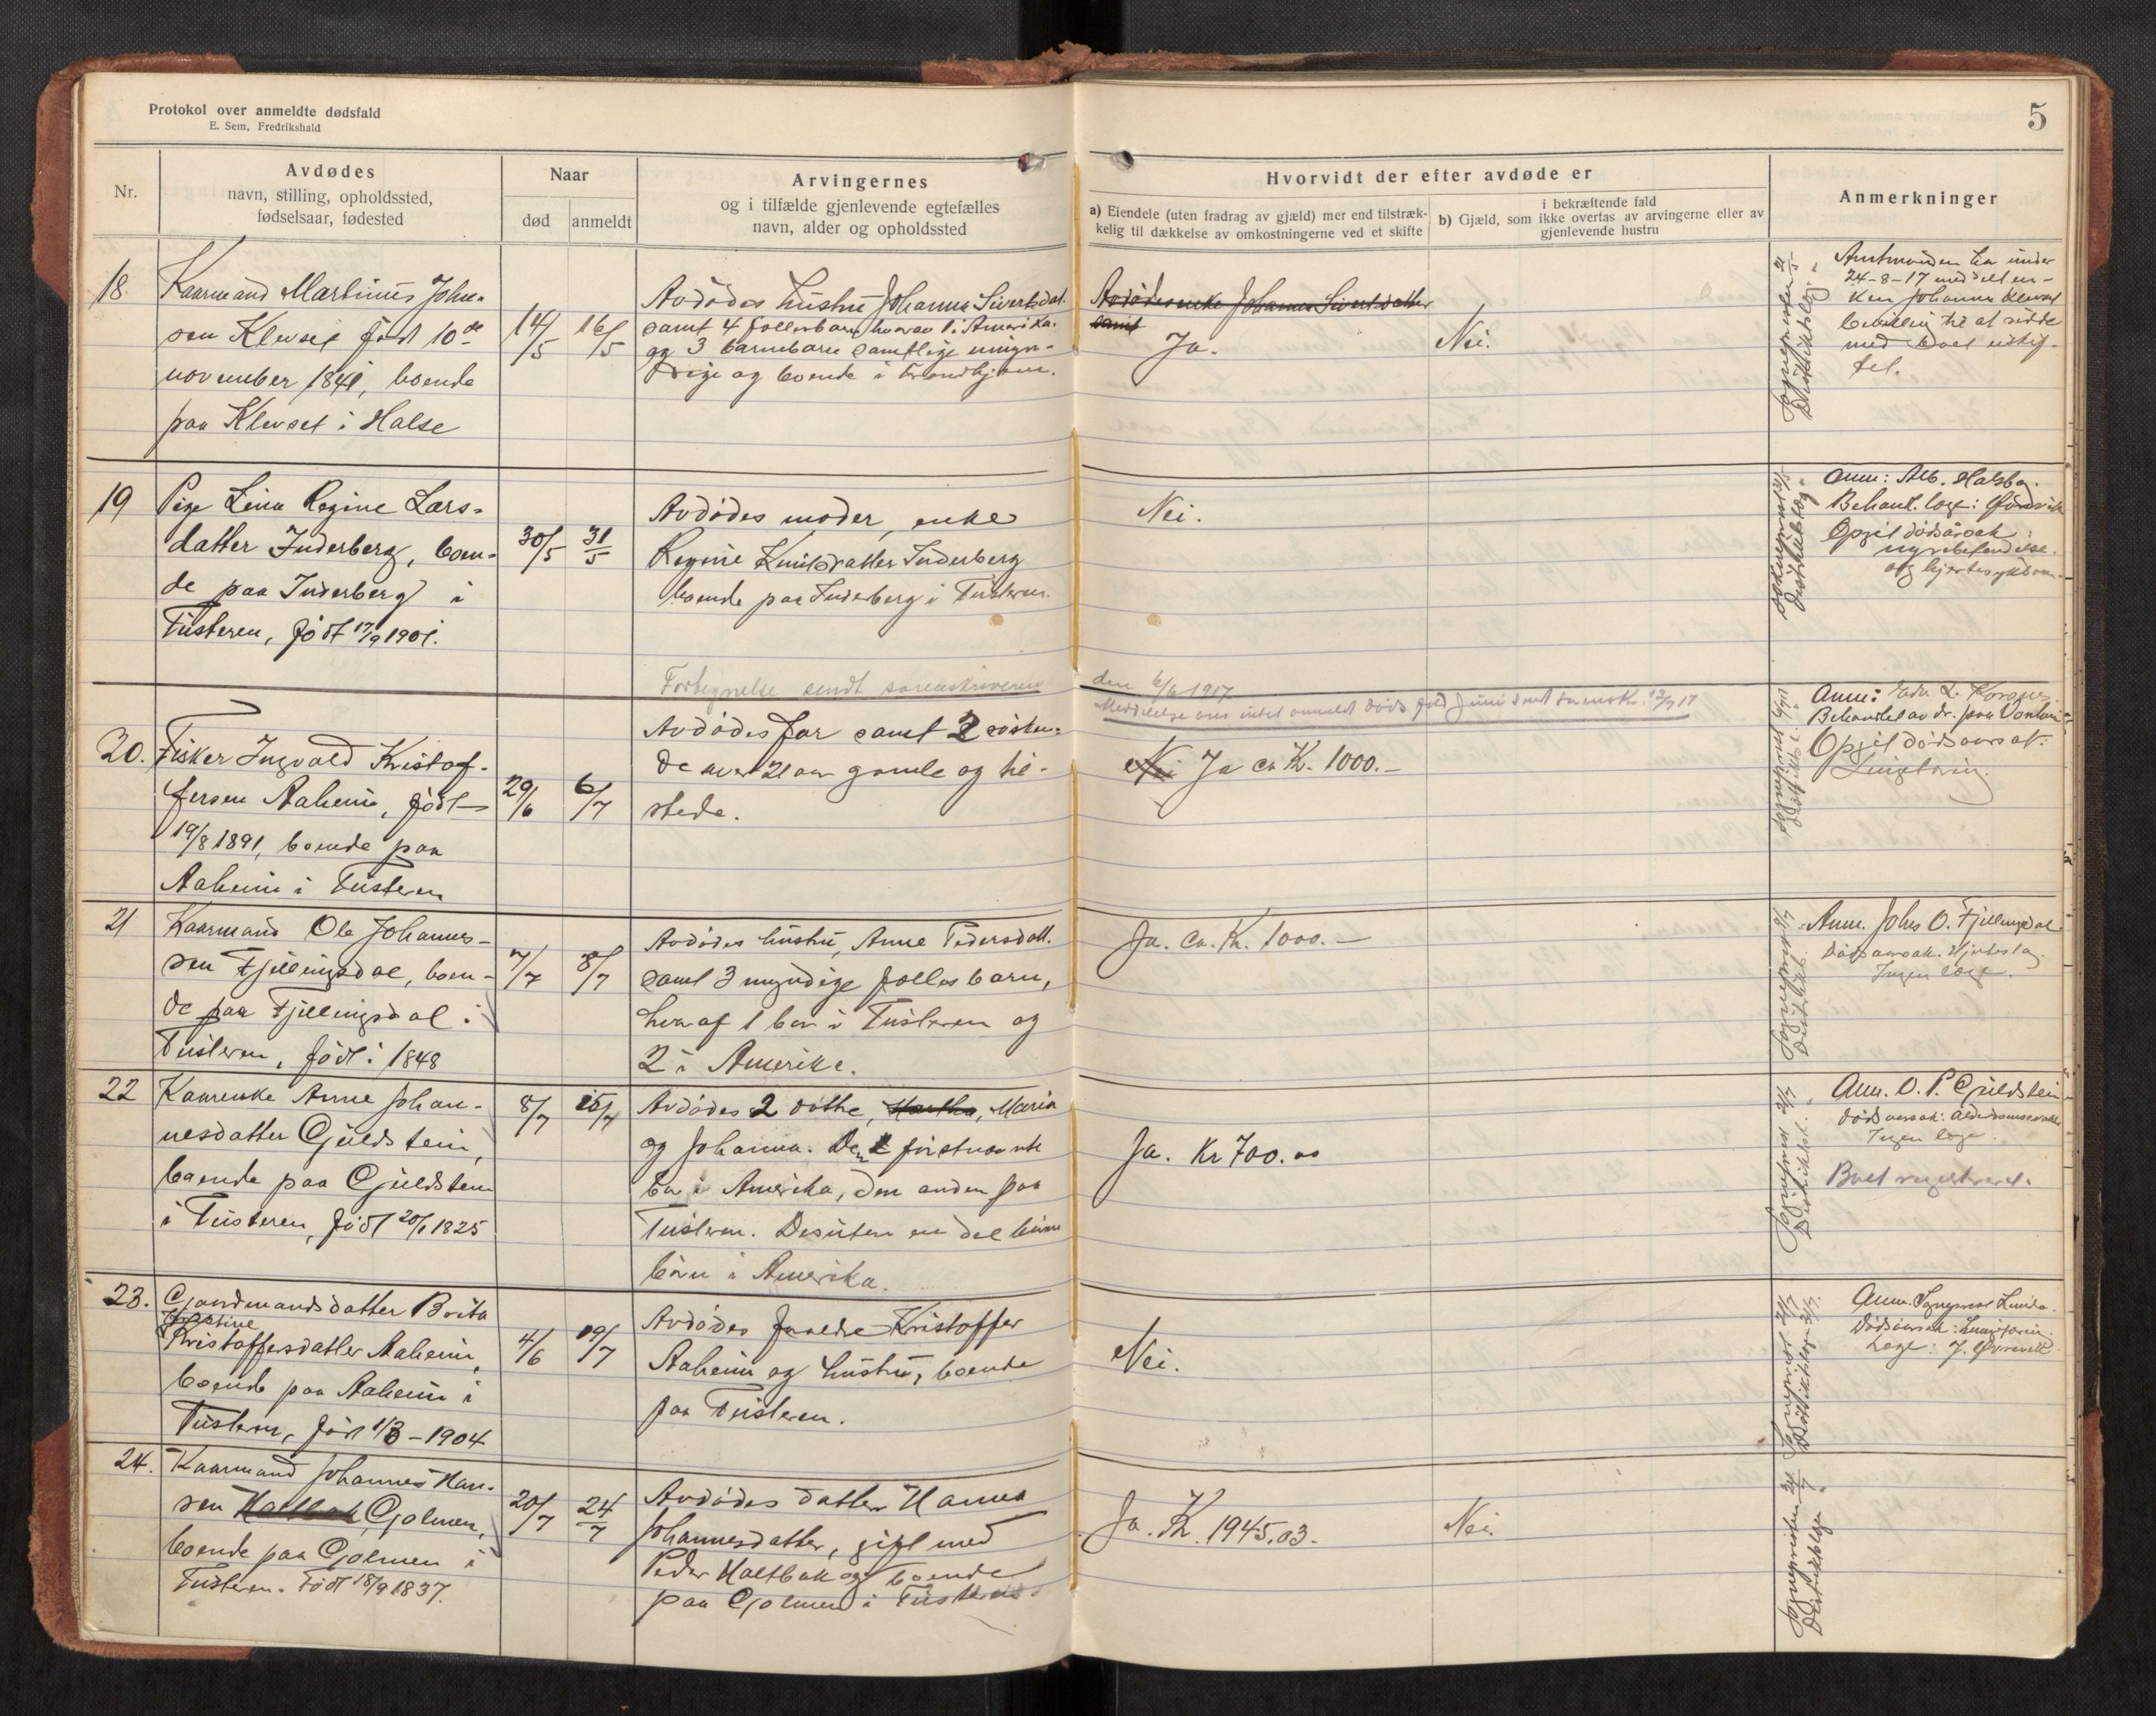 Protokol over anmeldte dødsfald
E. Sem, Fredrikshald
5
Nr.
Avdødes
navn, stilling, opholdssted,
fødselsaar, fødested
Naar
død
anmeldt
Arvingernes
og i tilfælde gjenlevende egtefælles
navn, alder og opholdssted
Hvorvidt der efter avdøde er
a) Eiendele (uten fradrag av gjæld) mer end tilstræk-
kelig til dækkelse av omkostningerne ved et skifte
i bekræftende fald
b) Gjæld, som ikke overtas av arvingerne eller av
gjenlevende hustru
Anmerkninger
18.
Kaarmand Martinus John-
sen Klevset født 10de
november 1841, boende
paa Klevset i Halse
14/5
16/5
Avdødes hustru Johanna Sivertsdat.
samt 4 fællesbarn, hvorav 1 i Amerika.
og 3 barnebarn samtlige umyn-
dige og boende i Trondhjem.
Avdødes enke Johanna Sivertsdatter
samt
Ja.
Nei.
Amtmanden har under
24-8-17 meddelt en-
ken Johanna Klevset
bevilling til at sidde
med boet uskif-
tet.
19
Pige Lina Regine Lars-
datter Inderberg, boen-
de paa Inderberg i
Tusteren, født 17/9 1901.
30/5
31/5
Avdødes moder, enke
Regine Knutsdatter Inderberg
boende paa Inderberg i Tusteren.
Nei.
Anm: Alb. Halsbog.
Behandl. læge:
Opgit dødsårsak:
nyrebetændelse
og hjertesygdom.
Fortegnelse sendt sorenskriveren
den 6/6 1917
Meddelelse om intet anmeldt dødsfald Juni sendt sorensk. 12/7 17
20.
Fisker Ingvald Kristof-
fersen Aaheim, født
19/8 1891, boende paa
Aaheim i Tusteren
29/6
6/7
Avdødes far samt 2 søsken-
de over 21 aar gamle og til-
stede.
Nei Ja ca Kr. 1000.-
Anm:
Behandlet av dr. paa
Opgit dødsaarsak:
21
Kaarmand Ole Johannes-
sen Fjellingsdal, boen-
de paa Fjellingsdal i
Tusteren, født i 1848
7/7
8/7
Avdødes hustru, Anne Pedersdatt.
samt 3 myndige fællesbarn,
hvoraf 1 bor i Tusteren og
2 i Amerika.
Ja. Ca. Kr. 1000.-
Anm. Johs O. Fjellingsdal
Dødsaarsak. Hjerteslag.
Ingen læge.
22
Kaarenke Anne Johan-
nesdatter Gjeldstein,
boende paa Gjeldstein
i Tusteren, født 20/1 1825
8/7
15/7
Avdødes 2 døttre, Martha, Maria
og Johanna. Den førstnævnte
bor i Amerika, den anden paa
Tusteren. Desuten en del barne
børn i Amerika.
Ja. Kr 700.00
Anm. O. P. Gjeldstein
Dødsaarsak: Alderdomssvakhet
Ingen læge.
Boet registreret.
23.
Gaardmandsdatter Brita
Kristoffersdatter Aaheim,
boende paa Aaheim i
Tusteren, født 1/3 - 1904
4/6
19/7
Avdødes forældre Kristoffer
Aaheim og hustru, boende
paa Tusteren.
Nei.
Anm. Sognprest
Dødsaarsak:
Læge: J.
24.
Kaarmand Johannes Han-
sen Haltbak Gjolmen,
boende paa Gjolmen i
Tusteren. Født 18/9 1837.
20/7
24/7
Avdødes datter Hanna
Johannesdatter, gift med
Peder Haltbak og boende
paa Gjolmen i Tusteren.
Ja. Kr. 1945.03.
Nei.